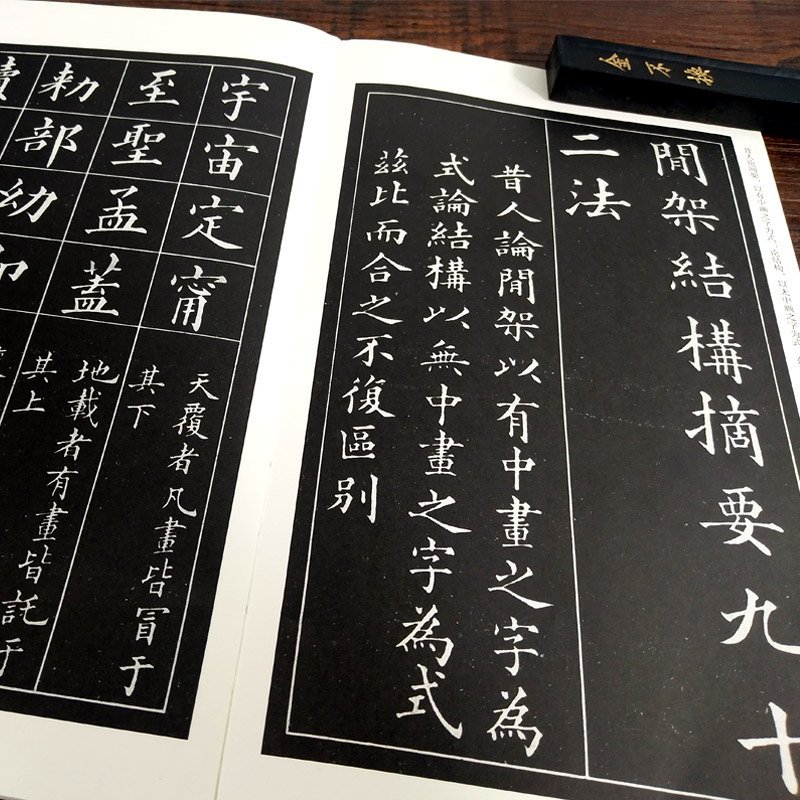 金不換
閒架結構摘要九十
二法
昔人論閒架以有中畫之字為
式論結構以無中畫之字為式
茲比而合之不復區別
宇宙定甯
天覆者凡畫皆冒于
其下
至聖孟蓋
地載者有畫皆託于
其上
勅部幼